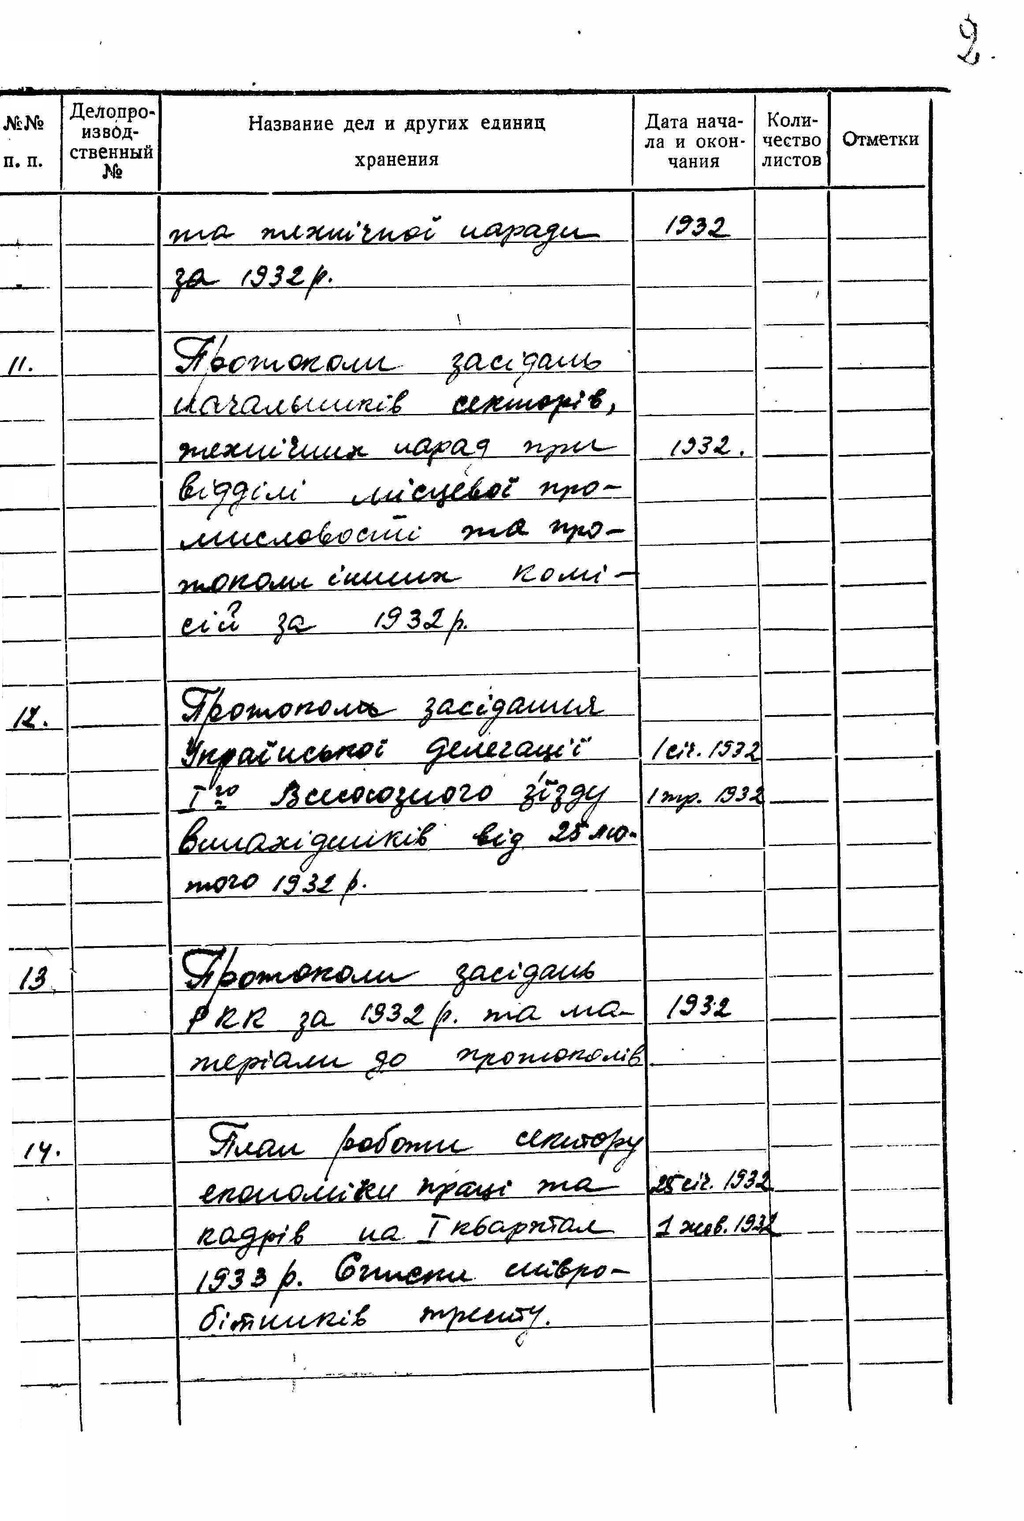 2.
№№ п. п.
Делопро-
извод-
ственный
№
Название дел и других единиц
хранения
Дата нача-
ла и окон-
чания
Коли-
чество
листов
Отметки
та технічної наради 1932
за 1932 р.
11. Протоколи засідань
начальників секторів,
технічних нарад при 1932.
відділі місцевої про-
мисловості та про-
токоли інших комі-
сій за 1932 р.
12. Протокол засідання
Української делегації 1 січ. 1932
І го Всесоюзного з'їзду 1 тр. 1932
винахідників від 25 лю-
того 1932 р.
13. Протоколи засідань
РКК за 1932 р. та ма- 1932
теріали до протоколів
14. План роботи сектору
економіки праці та 25 січ. 1932
кадрів на І квартал 1 жов. 1932
1933 р. Списки співро-
бітників тресту.